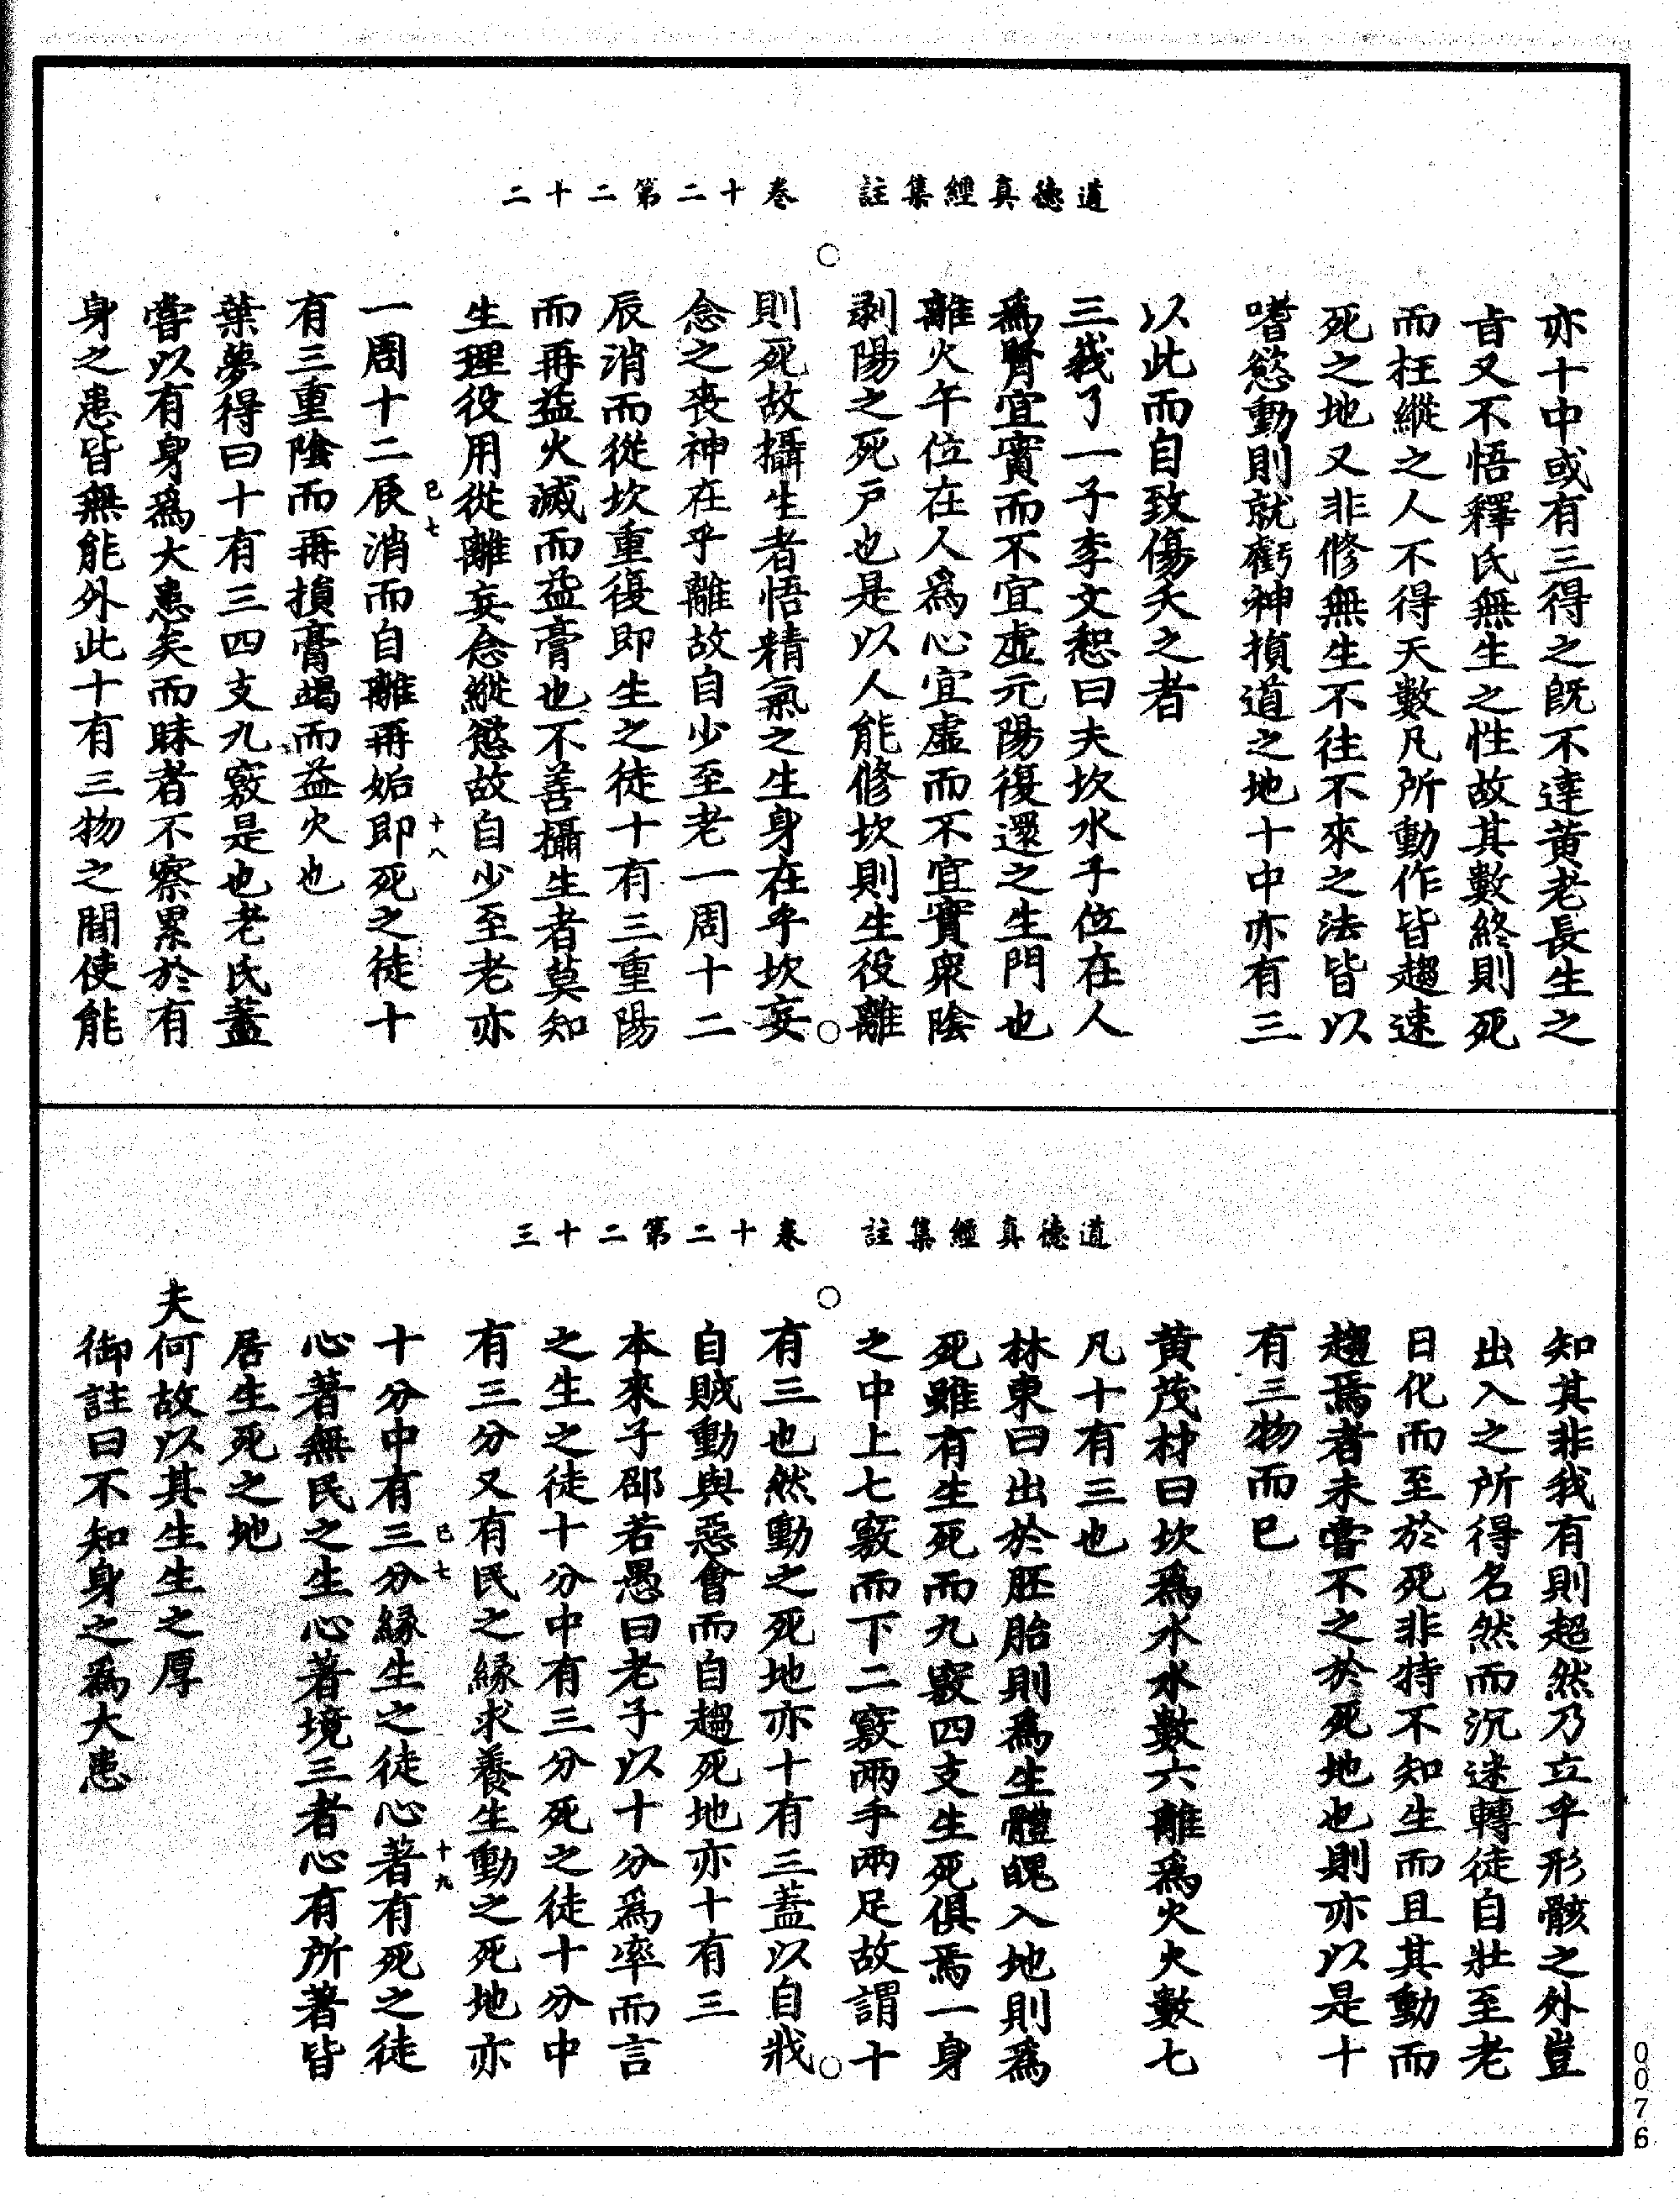 道德真經集註　卷十二第二十二
亦十中或有三得之既不達黃老長生之
旨又不悟釋氏無生之性故其數終則死
而枉縱之人不得天數凡所動作皆趨速
死之地又非修無生不往不來之法皆以
嗜慾動則就虧神損道之地十中亦有三
以此而自致傷夭之者
三義了一子李文恕曰夫坎水子位在人
為腎宜實而不宜虛元陽復還之生門也
離火午位在人為心宜虛而不宜實衆陰
剥陽之死戶也是以人能修坎則生役離
則死故攝生者悟精氣之生身在乎坎妄
念之喪神在乎離故自少至老一周十二
辰消而從坎重復即生之徒十有三重陽
而再益火滅而益膏也不善攝生者莫知
生理役用從離妄念縱慾故自少至老亦
一周十二辰消而自離再姤即死之徒十
已七
十八
有三重陰而再損膏竭而益火也
葉夢得曰十有三四支九竅是也老氏蓋
嘗以有身為大患矣而昧者不察累於有
身之患皆無能外此十有三物之間使能
道德真經集註　卷十二第二十三
知其非我有則超然乃立乎形骸之外豈
出入之所得名然而沉迷轉徒自壯至老
日化而至於死非特不知生而且其動而
趨焉者未嘗不之於死地也則亦以是十
有三物而已
黃茂材曰坎為水水數六離為火火數七
凡十有三也
林東曰出於胚胎則為生體魄入地則為
死雖有生死而九竅四支生死俱焉一身
之中上七竅而下二竅兩手兩足故謂十
有三也然動之死地亦十有三蓋以自戕
自賊動與惡會而自趨死地亦十有三
本來子邵若愚曰老子以十分為率而言
之生之徒十分中有三分死之徒十分中
有三分又有民之緣求養生動之死地亦
十分中有三分緣生之徒心著有死之徒
已七
十九
心著無民之生心著境三者心有所著皆
居生死之地
夫何故以其生生之厚
御註曰不知身之為大患
0076